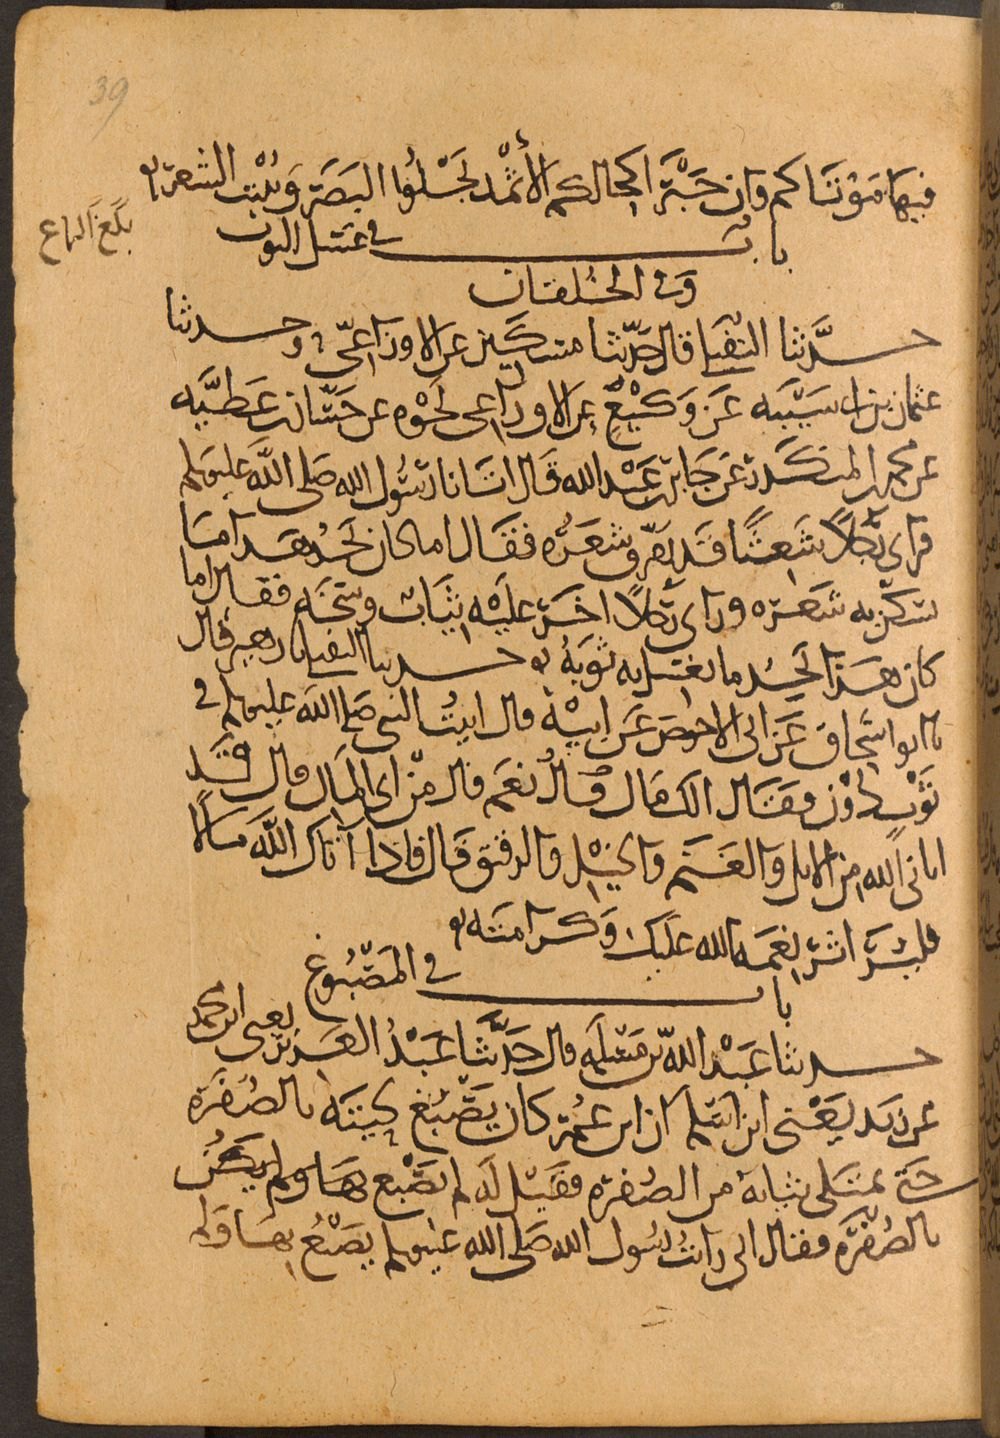 39
فيها موتاكم وان خير اكحالكم الاثمد يجلوا البصر وينبت الشعر
بلغ السماع
باب في غسل الثوب
وفي الخلقان
حدثنا النفيلي قال حدثنا مسكين عن الاوزاعي ح وحدثنا
عثمان بن ابي شيبه عن وكيع عن الاوزاعي نحوه عن حسان بن عطيه
عن محمد بن المنكدر عن جابر بن عبد الله قال اتانا رسول الله صلى الله عليه وسلم
فراى رجلا شعثا قد تفرق شعره فقال اما كان يجد هذا ما
يسكن به شعره وراى رجلا اخر عليه ثياب وسخه فقال اما
كان هذا يجد ما يغسل به ثوبه حدثنا النفيلي نا زهير قال
نا ابو اسحاق عن ابي الاحوص عن ابيه قال اتيت النبي صلى الله عليه وسلم في
ثوب دون فقال الك مال قال نعم قال من اي المال قال قد
اتاني الله من الابل والغنم والخيل والرقيق قال فاذا اتاك الله مالا
فلير اثر نعمه الله عليك وكرامته
باب في المصبوغ
حدثنا عبد الله بن مسلمه قال حدثنا عبد العزيز يعني ابن محمد
عن زيد يعني ابن اسلم ان ابن عمر كان يصبغ لحيته بالصفره
حتى تمتلى ثيابه من الصفره فقيل له لم تصبغ
بالصفره فقال اني رايت رسول الله صلى الله عليه وسلم يصبغ بها ولم